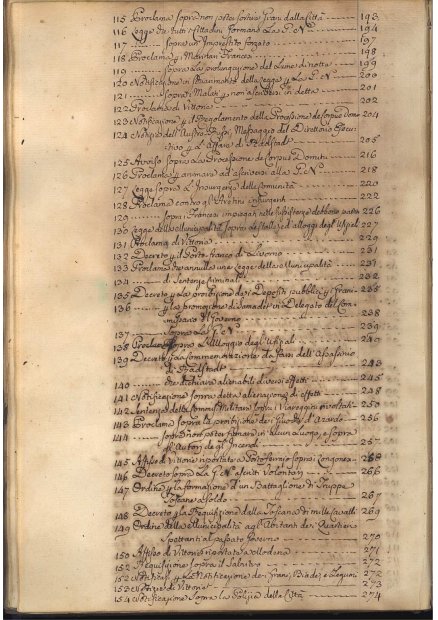 115 Proclama sopra non poter sortire Grani dalla Città 193
116 Legge che tutti i Cittadini formano La G. N. 194
117 sopra un Imprestito forzato 197
118 Proclama y Militari Francesi 198
119 sopra La prolungazione del Lume di notta 199
120 Notificazione in Aumento della Legge y La G. N. 200
121 sopra i Malati, e non ascriversi in detta 201
122 Proclama di Vittoria 202
123 Notificazione, e il Regolamento della Processione de Corpus Domi 204
124 Notizie dell' Messaggio del Direttorio Esecu
tivo y L'Affare di Radstadt 205
125 Avviso sopra La Processione de Corpus Domini 216
126 Proclama y animare ad ascriversi alla G. N. 218
127 Legge sopra L'Insurgenza delle Comunità 220
128 Proclama contro gl'Aretini Insurgenti 222
129 sopra i Francesi impiegati nelle sussistenze 226
130 Legge della Municipalità sopra le stalle, ed alloggi degl' 227
131 Proclama di Vittoria 229
132 Decreto y il Porto franco di Livorno 231
133 Proclama che annulla una Legge della Municipalità
di Sentenze Criminali 232
135 Decreto y La proibizione dei Depositi pubblici y i Grani 235
136 y La promozione di in Delegato del Com
missario di Governo 238
137 sopra La G. N. 239
138 Proclama sopra L'Alloggio degl' 240
139 Decreto y La Commemorazione da farsi dell'Assassinio
di Radstadt 243
140 che dichiara alienabili diversi effetti 245
141 Notificazione sopra detta alienazione di effetti 248
142 Sentenza della Commis. Militare sopra i Viareggini 250
143 Proclama sopra la proibizione dei Giuochi d'Azardo 256
144 sopra Non poter fumare in alcun Luogo, e sopra
gl'Autori de gl'Incendi 257
145 Affisso di Vittorie riportate a Porto Ferrajo sopra 260
146 Decreto sopra La G. N. ascritti Volontari 266
147 Ordine y La formazione d'un Battaglione di Truppe
Toscane a Soldo 267
148 Decreto y La Requisizione della Toscana di mille cavalli 269
149 Ordine della Municipalità agl'Abitanti dei Quartieri
Spettanti al passato Governo 270
150 Affisso di Vittorie riportate a Modena 271
151 Requisizione sopra il Salnitro 272
152 y La Notificazione dei Grani, Biade, e Legumi 272
153 Notizie di Vittorie 273
154 Notificazione sopra La Polizia della Città 274